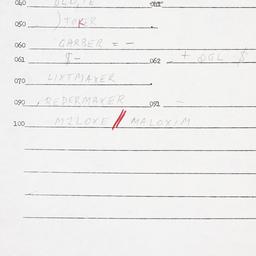 040
050 JOKER
060 GARBER = -
061 $- 062 + $
070 LIXTMAXER
090 REDERMAXER 091 -
100 MILOXE // MALOXIM